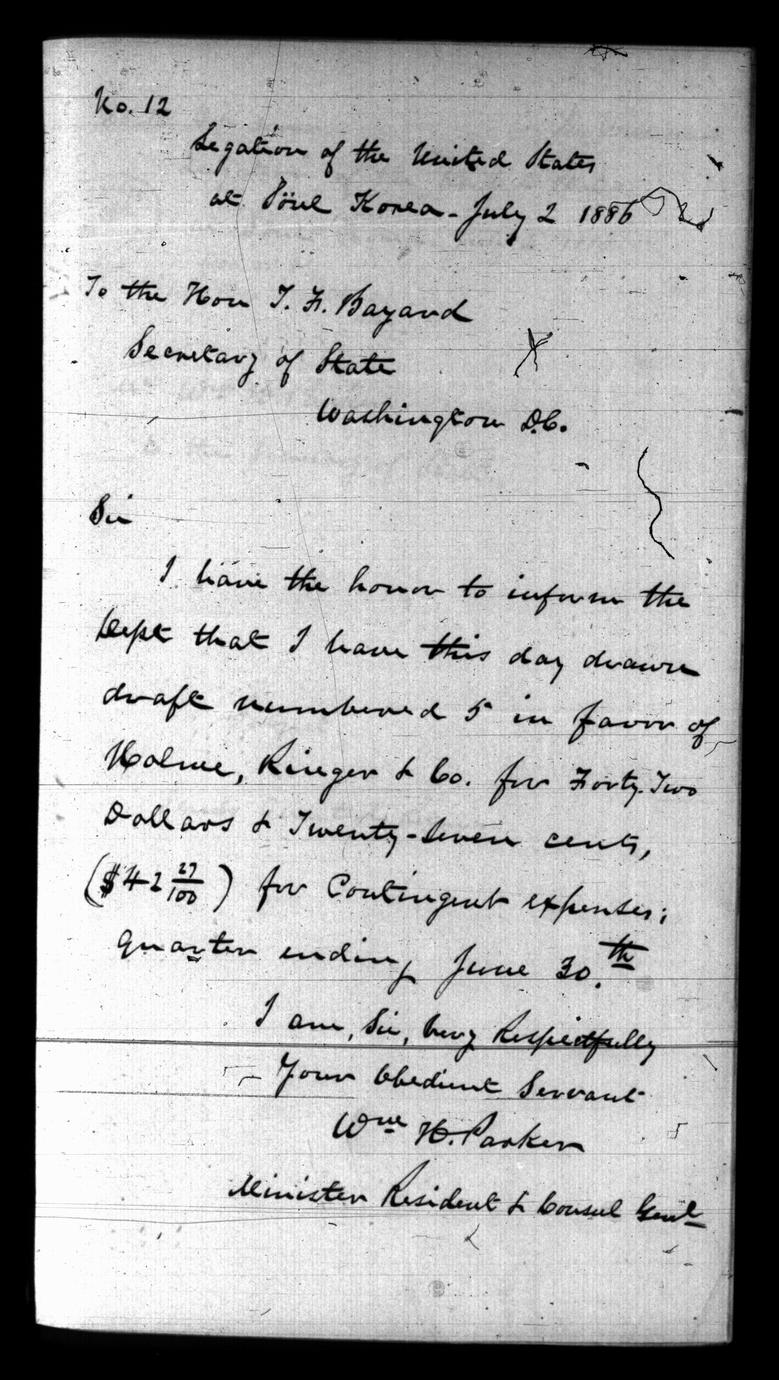 No. 12
Legation of the United States
at Söul Korea - July 2 1886
To the Hon T. F. Bayard
Secretary of State
Washington D.C.
Sir
I have the honor to inform the
Dept that I have this day drawn
draft numbered 5 in favor of
Holme, Ringer & Co. for Forty-Two
Dollars & Twenty-Seven cents,
($42 27/100) for Contingent expenses;
quarter ending June 30.th
I am, Sir, Very Respectfully
Your Obedient Servant
Wm H. Parker
Minister Resident & Consul Genl